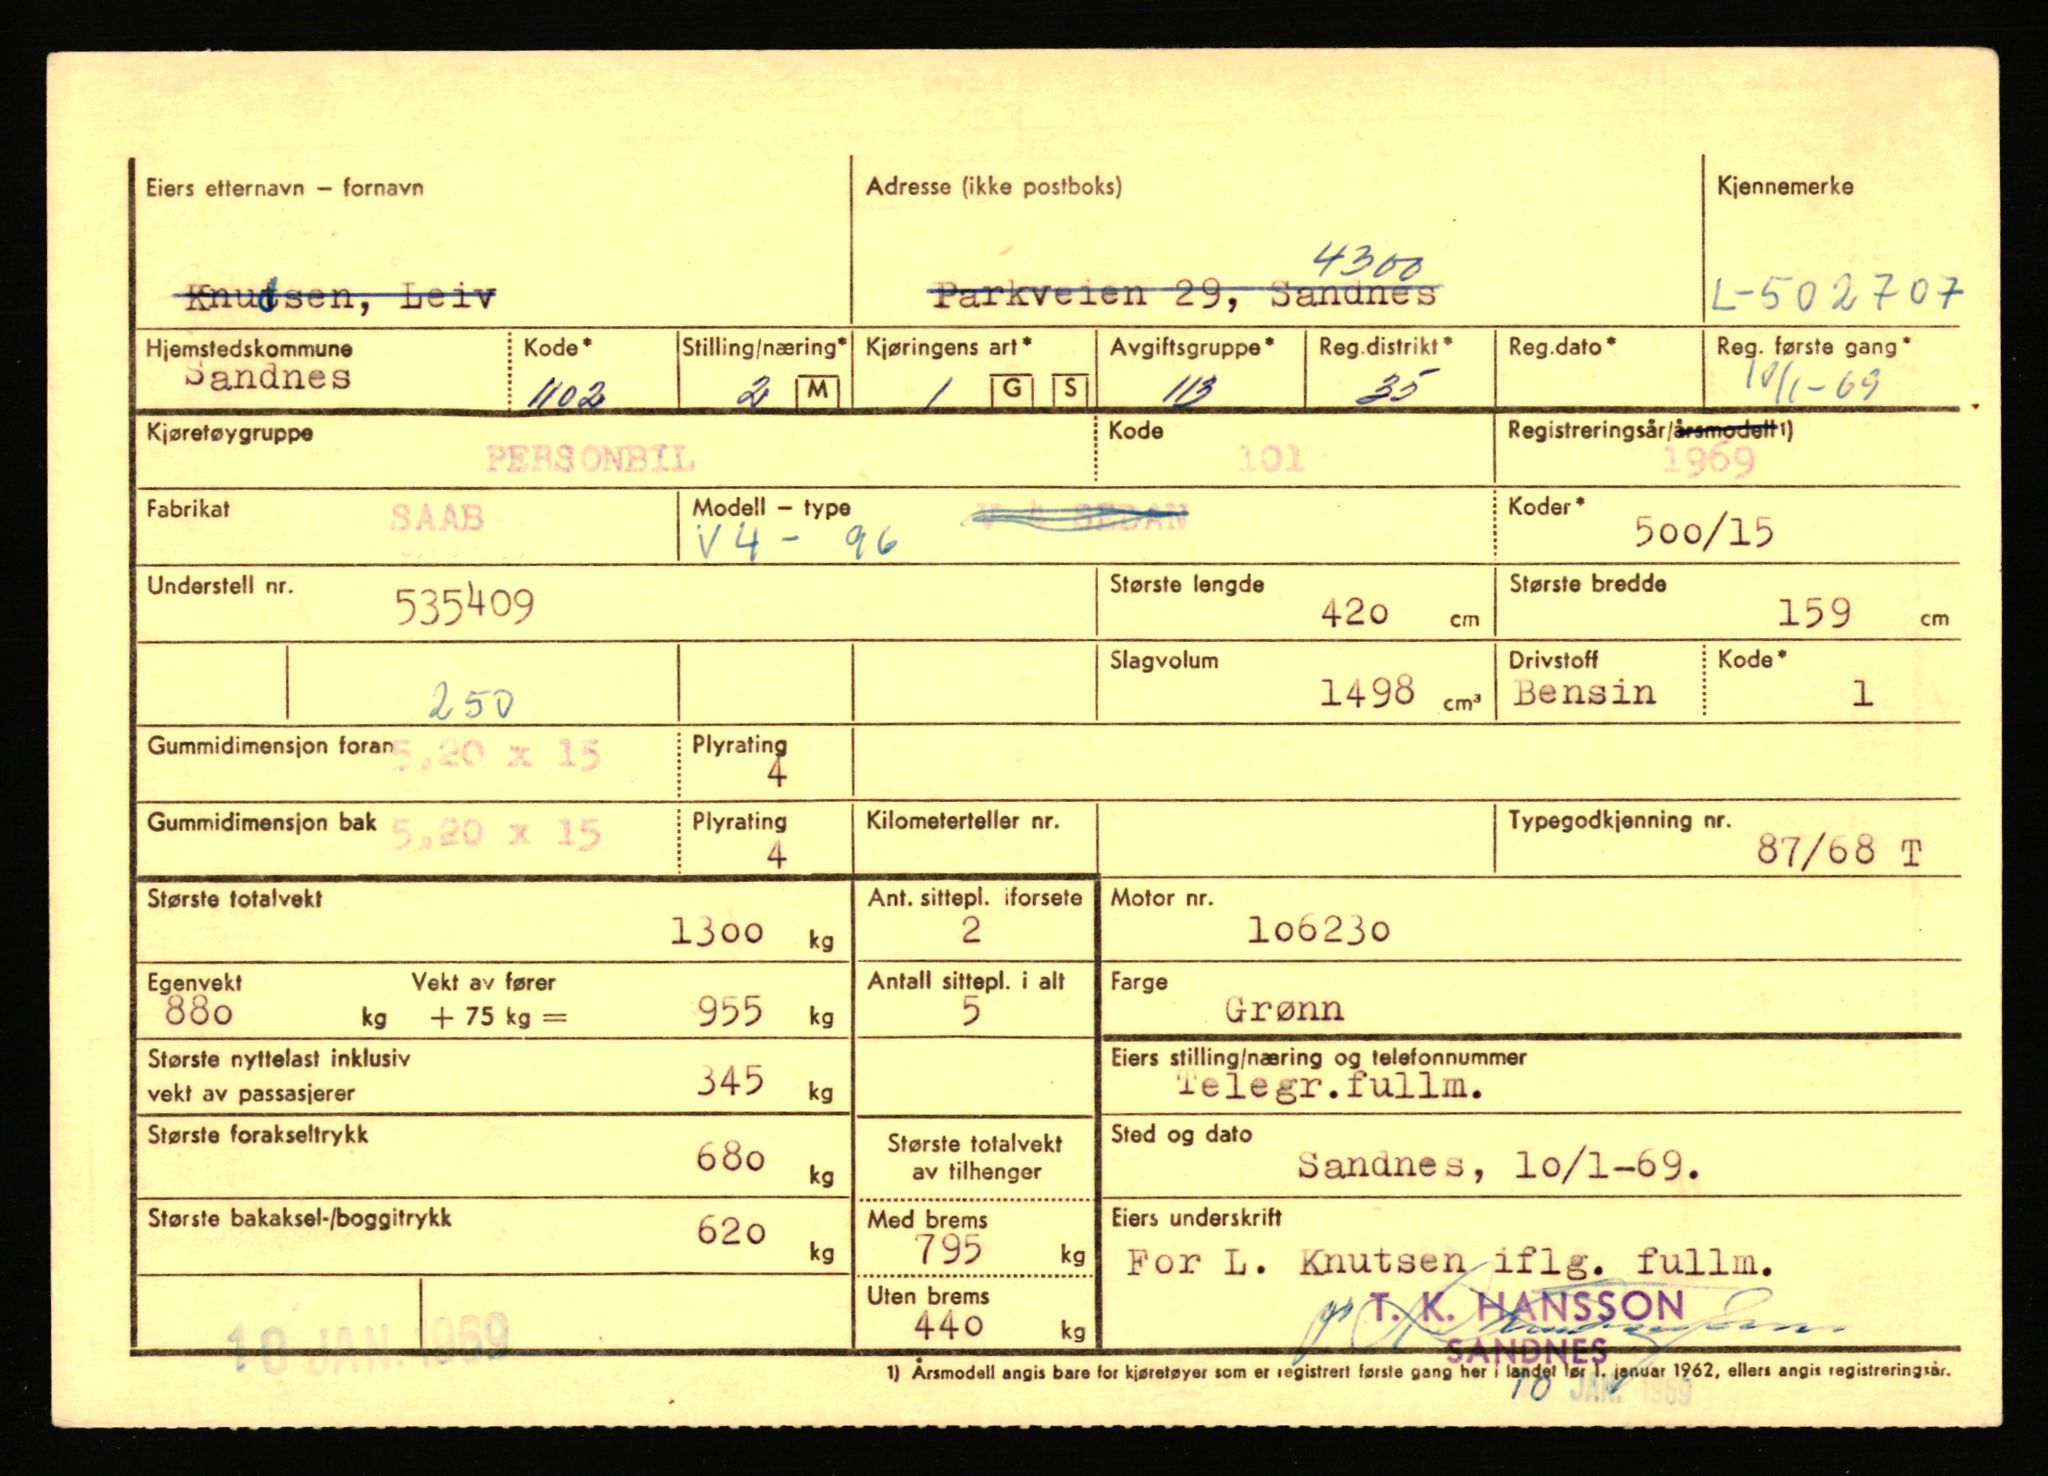 Eiers etternavn – fornavn
Adresse (ikke postboks)
Kjennemerke
4300
Knutsen, Leiv
Parkveien 29, Sandnes
L-502707
Hjemstedskommune
Kode*
Stilling/næring*
Kjøringens art*
Avgiftsgruppe*
Reg.distrikt*
Reg.dato*
Reg. første gang*
Sandnes
1102
2 M
1 G S
113
35
10/1-69
Kjøretøygruppe
PERSONBIL
Kode
101
Registreringsår/årsmodell 1)
1969
Fabrikat
SAAB
Modell – type
V 4 SEDAN
V4 - 96
Koder*
500/15
Understell nr.
535409
Største lengde
420 cm
Største bredde
159 cm
250
Slagvolum
1498 cm³
Drivstoff
Bensin
Kode*
1
Gummidimensjon foran
5,20 x 15
Plyrating
4
Gummidimensjon bak
5,20 x 15
Plyrating
4
Kilometerteller nr.
Typegodkjenning nr.
87/68 T
Største totalvekt
1300 kg
Ant. sittepl. iforsete
2
Motor nr.
106230
Egenvekt
880 kg
Vekt av fører
+ 75 kg =
955 kg
Antall sittepl. i alt
5
Farge
Grønn
Største nyttelast inklusiv
vekt av passasjerer
345 kg
Eiers stilling/næring og telefonnummer
Telegr.fullm.
Største forakseltrykk
680 kg
Største totalvekt
av tilhenger
Sted og dato
Sandnes, 10/1-69.
Største bakaksel-/boggitrykk
620 kg
Med brems
795 kg
Eiers underskrift
For L. Knutsen iflg. fullm.
Uten brems
440 kg
T. K. HANSSON
SANDNES
JAN. 1969
1) Årsmodell angis bare for kjøretøyer som er registrert første gang her i landet før 1. januar 1962, ellers angis registreringsår.
10 JAN. 1969